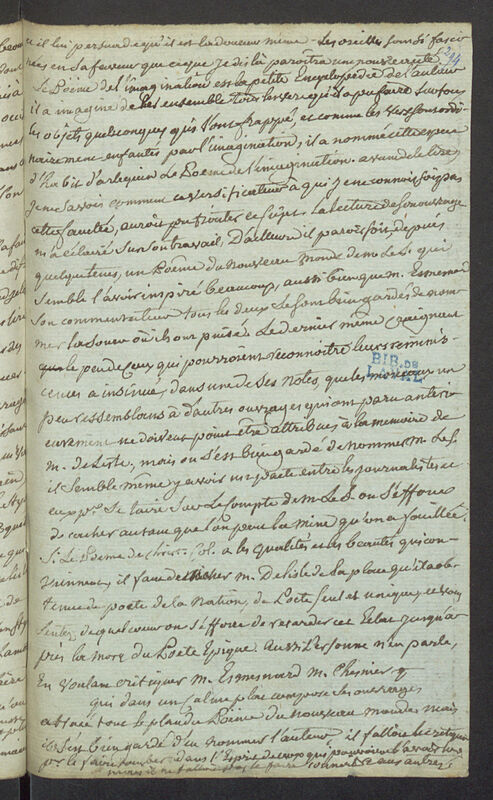 il lui persuade qu'il est la douceur même. Les oreilles sont si fasci
nées en sa faveur que ce que je dis là paroitra une nouveauté.
244
Le Poëme de l'imagination est la petite Encyclopédie de l'auteur
il a imaginé de lier ensemble tous les vers qu'il a pu faire sur tous
les objets quelconques qui l'ont frappé, et comme les vers sont ordi
nairement enfantés par l'imagination, il a nommé cette espece
d'habit d'arlequin Le Poëme de l'imagination. avant de le lire
je ne savois comment ce versificateur à qui je ne connoissois pas
cette faculté, auroit pu traiter ce sujet. La lecture de son ouvrage
m'a éclairé sur son travail. D'ailleurs il paroissoit depuis
quelque tems, un Poëme du nouveau monde de m. Le S. qui
semble l'avoir inspiré beaucoup, aussi bien que m. Esmenard
son commentateur. tous les deux se sont bien gardés de nom
mer la source où ils ont puisé. Le dernier même craignant
que le peu de gens qui pourroient reconnoitre leurs réminis
cences a insinué, dans une de ses notes, que les morceaux un
BIB. DE
LAVAL
peu ressemblans à d'autres ouvrages qui ont paru antéri
eurement ne doivent point être attribués à la mémoire de
m. de Lisle, mais on s'est bien gardé de nommer m. Le S.
il semble même y avoir un pacte entre les journalistes et
eux pr. se taire sur le compte de m. Le S. on s'efforce
de cacher autant que l'on peut la mine qu'on a fouillée.
Si le Poëme de a les qualités et les beautés qui con
viennent, il faut m. Delisle de la place qu'il a ob
tenue de poete de la nation, de Poete seul et unique, et vous
sentez de quel coeur on s'efforce de retarder cet éclat jusqu'a
près la mort du Poete Epique. Aussi Personne n'en parle,
En voulant critiquer m. Esmenard m. Chenier
qui dans un calme plat compose ses ouvrages
a tracé tout le plan du Poëme du nouveau monde mais
il s'est bien gardé d'en nommer l'auteur, il falloit le critiquer
pr le faire tomber dans l'Esprit de ceux qui pouvoient l'avoir lu
mais il ne falloit pas le faire connoitre aux autres.